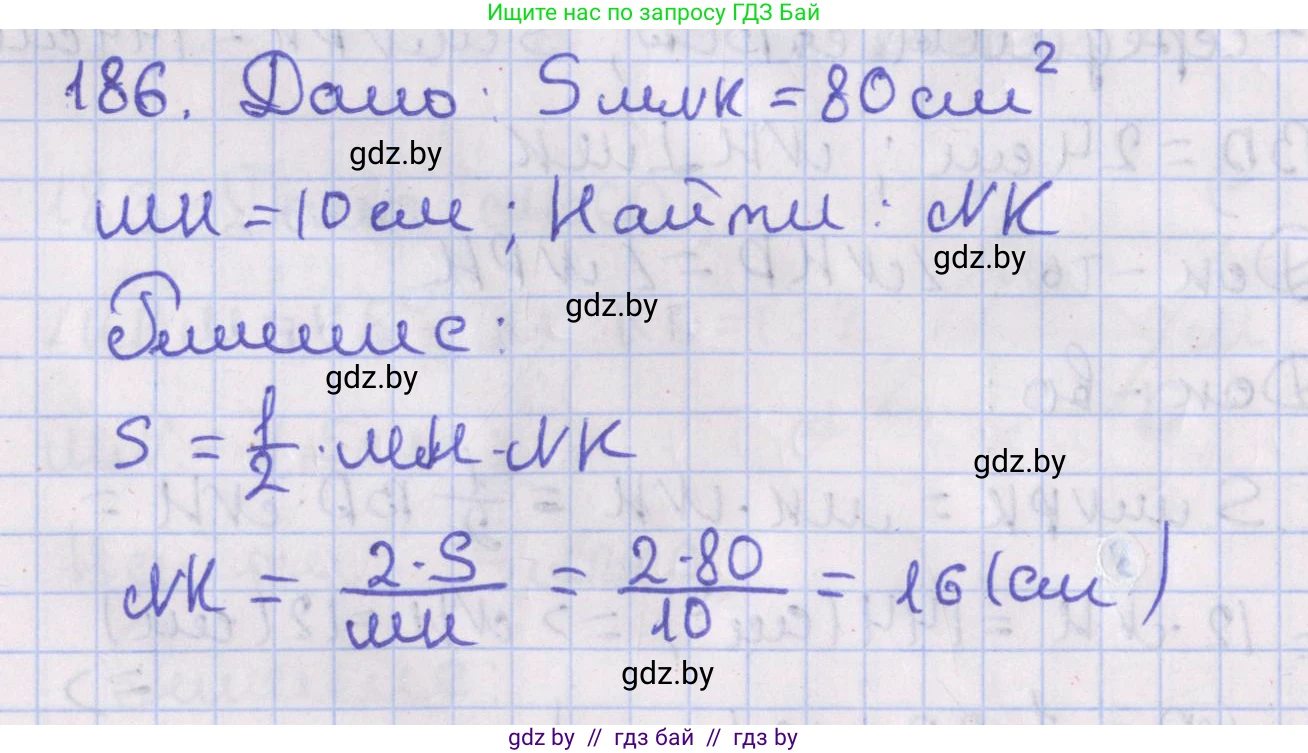 Ищите нас по запросу ГДЗ Бай
186. Дано: Sмnк = 80 см²
gdz.by
мн = 10 см; Найти: NK
gdz.by
gdz.by
Решение:
gdz.by
S = 1/2 · мн · NK
gdz.by
NK = 2·S/мн = 2·80/10 = 16 (см)
gdz.by
gdz by // гдз бай // гдз by